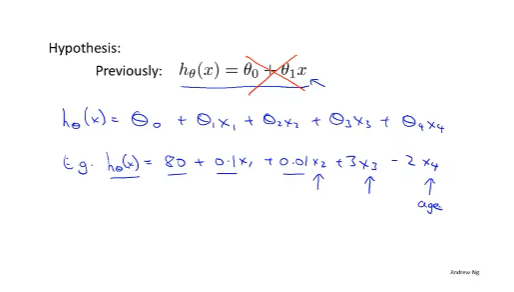 Hypothesis:
Previously: hθ(x) = θ0 + θ1x
hθ(x) = θ0 + θ1x1 + θ2x2 + θ3x3 + θ4x4
E.g. hθ(x) = 80 + 0.1x1 + 0.01x2 + 3x3 - 2x4
age
Andrew Ng